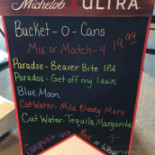 Michelob ULTRA
Bucket-O-Cans
Mix or Match-4 19.99
Paradox-Beaver Bite IPA
Paradox-Get off my lawn
Blue Moon
CutWater: Mild Bloody Mary
Cut Water: Tequila Margarita